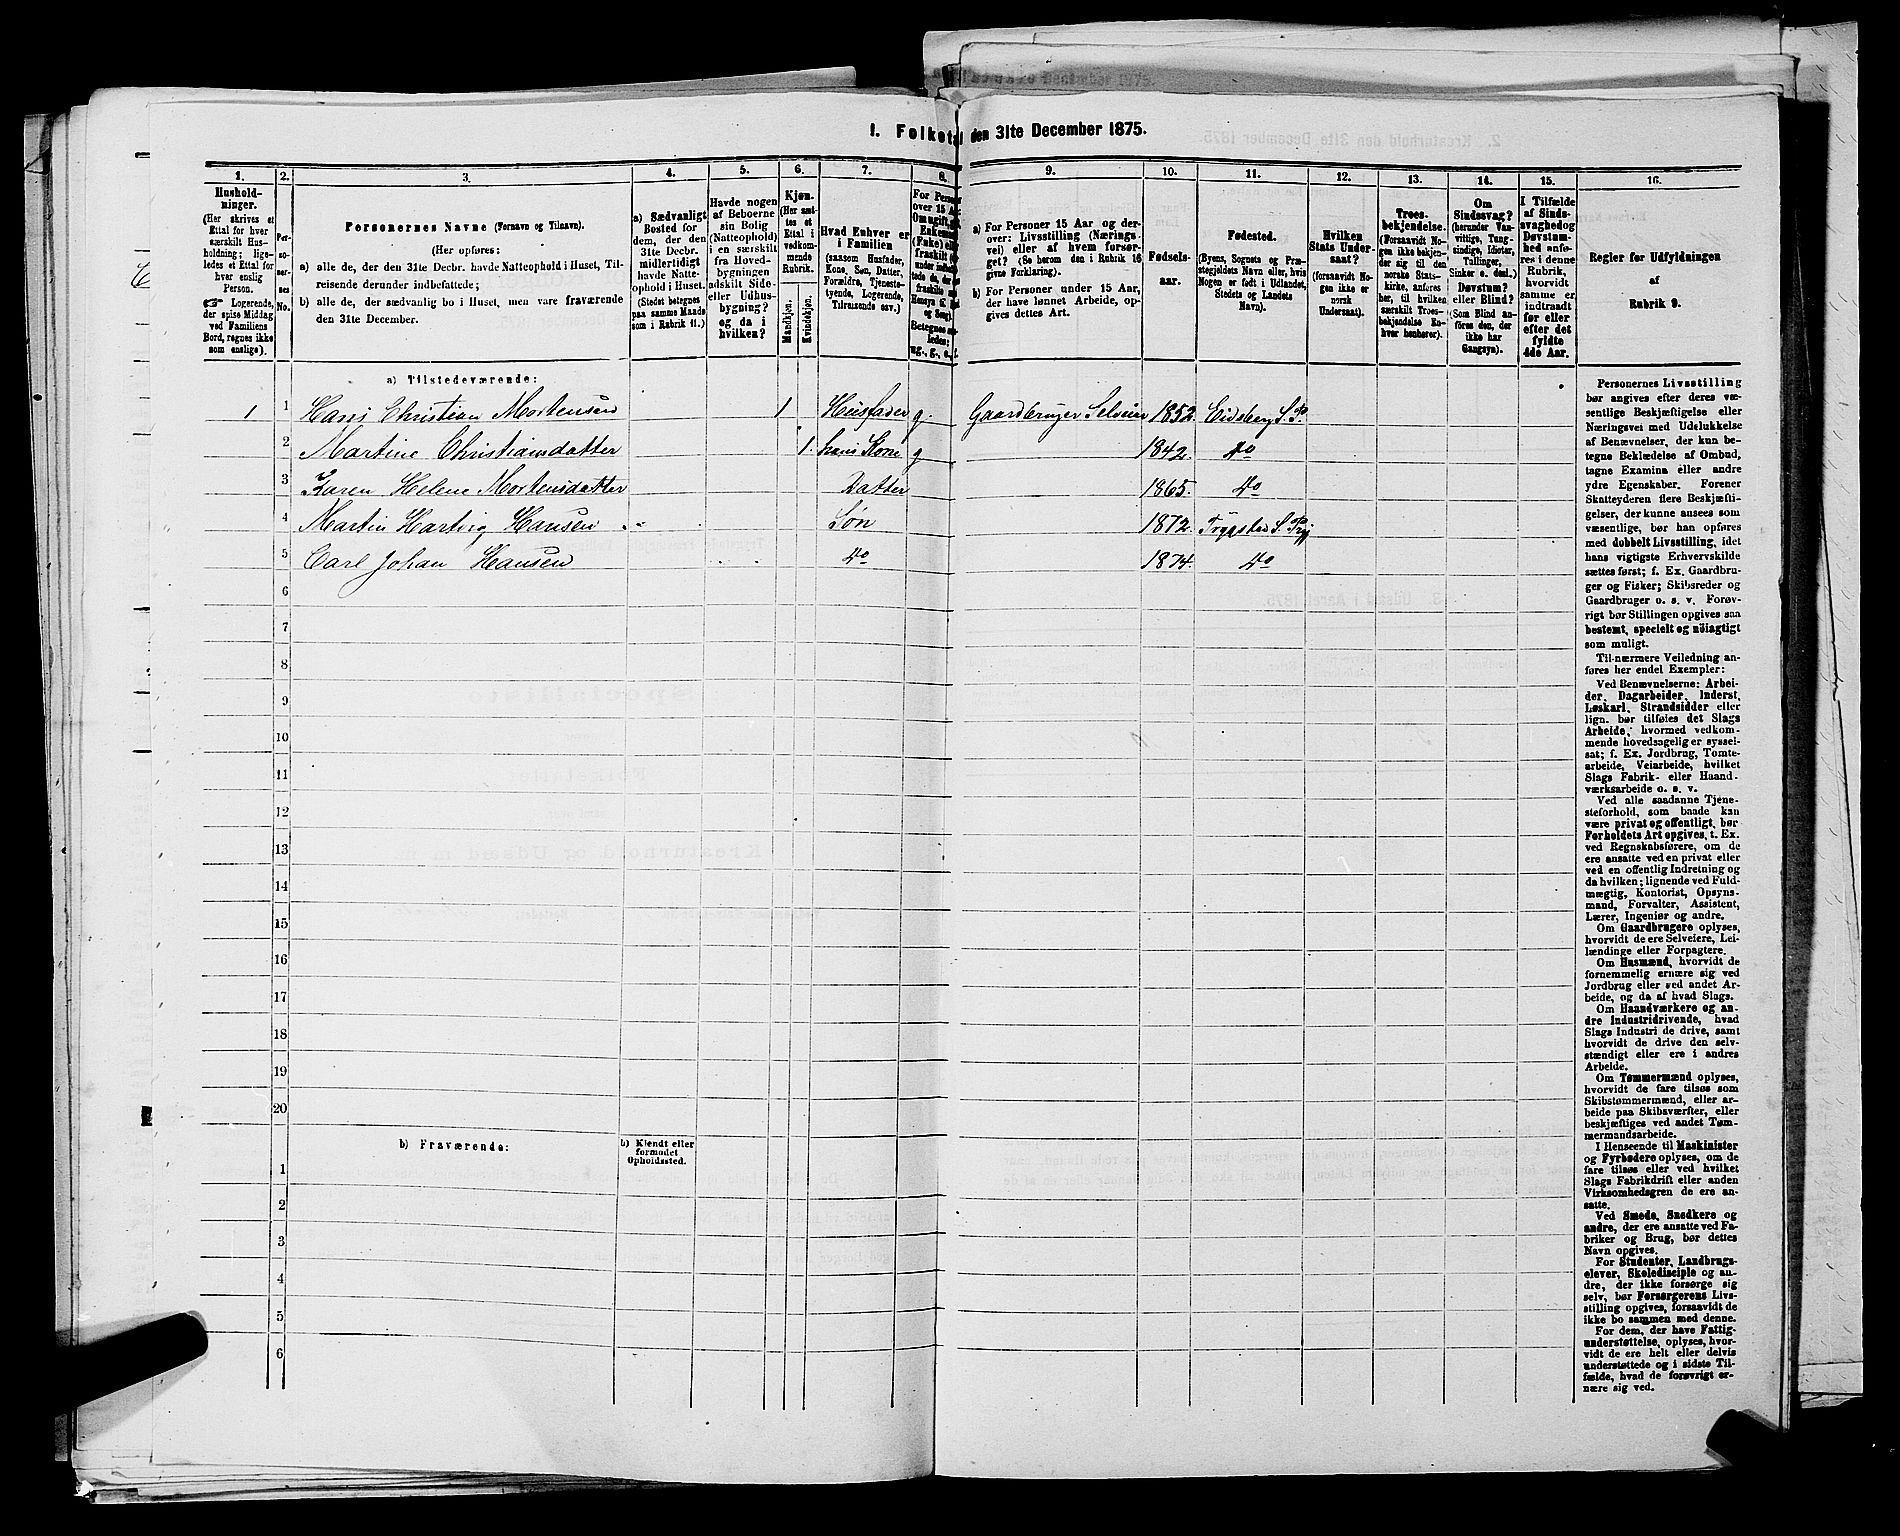 1. Folketal den 31te December 1875.
1. 2. 3. 4. 5. 6. 7. 8. 9. 10. 11. 12. 13. 14. 15. 16.
Hushold-
ninger.
(Her skrives et
Ettal for hver
særskilt Hus-
holdning; lige-
ledes et Ettal for
hver enslig
Person.
☞ Logerende,
der spise Middag
ved Familiens
Bord, regnes ikke
som enslige).
Per-
so-
ner-
nes
No.
Personernes Navne (Fornavn og Tilnavn).
(Her opføres:
a) alle de, der den 31te Decbr. havde Natteophold i Huset, Til-
reisende derunder indbefattede;
b) alle de, der sædvanlig bo i Huset, men vare fraværende
den 31te December.
a) Sædvanligt
Bosted for
dem, der den
31te Decbr.
midlertidigt
havde Natte-
ophold i Huset.
(Stedet betegnes
paa samme Maade
som i Rubrik 11.)
Havde nogen
af Beboerne
sin Bolig
(Natteophold)
i en særskilt
fra Hoved-
bygningen
adskilt Side-
eller Udhus-
bygning?
og da i
hvilken?
Kjøn.
(Her sæt-
tes et
Ettal i
vedkom-
mende
Rubrik.
Mandkjøn.
Kvindekjøn.
Hvad Enhver er
i Familien
(saasom Husfader,
Kone, Søn, Datter,
Forældre, Tjeneste-
tyende, Logerende,
Tilreisende osv.)
For
over 15
Om ugift,
Enkemand
(Enke) eller
fraskilt
a) For Personer 15 Aar og der-
over: Livsstilling (Nærings-
vei) eller af hvem forsør-
get? (Se herom den i Rubrik 16
givne Forklaring).
b) For Personer under 15 Aar,
der have lønnet Arbeide, op-
gives dettes Art.
Fødsels-
aar.
Fødested.
(Byens, Sognets og Præ-
stegjeldets Navn eller, hvis
Nogen er født i Udlandet,
Stedets og Landets
Navn).
Hvilken
Stats Under-
saat?
(forsaavidt No-
gen ikke er
norsk
Undersaat).
Troes-
bekjendelse.
(Forsaavidt No-
gen ikke bekjen-
der sig til den
norske Stats-
kirke, anføres
her, til hvilken
særskilt Troes-
bekjendelse En-
hver henhører).
Om
Sindssvag?
(herunder Van-
vittige, Tung-
sindige, Idioter,
Tullinger,
Sinker o. desl.)
Døvstum?
eller Blind?
(Som Blind an-
føres den, der
ikke har
Gangsyn).
I Tilfælde
af Sinds-
svaghed og
Døvstum-
hed anfø-
res i denne
Rubrik,
hvorvidt
samme er
indtraadt
før eller
efter det
fyldte
4de Aar.
Regler for Udfyldningen
af
Rubrik 9.
a) Tilstedeværende:
1 1 Hans Christian Mortensen 1 Husfader g. Gaardbruger Selveier 1852. Eidsberg S. P.
2 Martine Christiansdatter 1. hans Kone g 1842. do
3 Karen Helene Mortensdatter Datter 1865. do
4 Martin Hartvig Hansen Søn 1872. Trygstad S.
5 Carl Johan Hansen do 1874. do
6
7
8
9
10
11
12
13
14
15
16
17
18
19
20
b) Fraværende:
b) Kjendt eller
formodet
Opholdssted.
1
2
3
4
5
6
Personernes Livsstilling
bør angives efter deres væ-
sentlige Beskjæftigelse eller
Næringsvei med Udelukkelse
af Benævnelser, der kun be-
tegne Beklædelse af Ombud,
tagne Examina eller andre
ydre Egenskaber. Forener
Skatteyderen flere Beskjæfti-
gelser, der kunne ansees som
væsentlige, bør han opføres
med dobbelt Livsstilling, idet
hans vigtigste Erhvervskilde
sættes først; f. Ex. Gaardbru-
ger og Fisker; Skibsreder og
Gaardbruger o. s. v. Forøv-
rigt bør Stillingen opgives saa
bestemt, specielt og nöiagtigt
som muligt.
Til nærmere Veiledning an-
føres her endel Exempler:
Ved Benævnelserne: Arbei-
der, Dagarbeider, Inderst,
Løskarl, Strandsidder eller
lign. bør tilføies det Slags
Arbeide, hvormed vedkom-
mende hovedsagelig er syssel-
sat; f. Ex. Jordbrug, Tomte-
arbeide, Veiarbeide, hvilket
Slags Fabrik- eller Haand-
værksarbeide o. s. v.
Ved alle saadanne Tjene-
steforhold, som baade kan
være privat og offentligt, bør
Forholdets Art opgives, t. Ex.
ved Regnskabsførere, om de
ere ansatte ved en privat eller
ved en offentlig Indretning og
da hvilken; lignende ved Fuld-
mægtig, Kontorist, Opsyns-
mand, Forvalter, Assistent,
Lærer, Ingeniør og andre.
Om Gaardbrugere oplyses,
hvorvidt de ere Selveiere, Lei-
lændinge eller Forpagtere.
Om Husmænd, hvorvidt de
fornemmelig ernære sig ved
Jordbrug eller ved andet Ar-
beide, og da af hvad Slags.
Om Haandværkere og an-
dre Industridrivende, hvad
Slags Industri de drive, samt
hvorvidt de drive den selv-
stændigt eller ere i andres
Arbeide.
Om Tømmermænd oplyses,
hvorvidt de fare tilsøs som
Skibstømmermænd, eller ar-
beide paa Skibsværfter, eller
beskjæftiges ved andet Tøm-
mermandsarbeide.
I Henseende til Maskinister
og Fyrbødere oplyses, om de
fare tilsøs eller ved hvilket
Slags Fabrikdrift eller anden
Virksomhedsgren de ere an-
satte.
Ved Smede, Snedkere og
andre, der ere ansatte ved Fa-
briker og Brug, bør dettes
Navn opgives.
For Studenter, Landbrugs-
elever, Skoledisciple og an-
dre, der ikke forsørge sig
selv, bør Forsørgerens Livs-
stilling opgives, forsaavidt de
ikke bo sammen med denne.
For dem, der have Fattig-
understøttelse, oplyses, hvor-
vidt de ere helt eller delvis
understøttede og i sidste Til-
fælde, hvad de forøvrigt er-
nære sig ved.